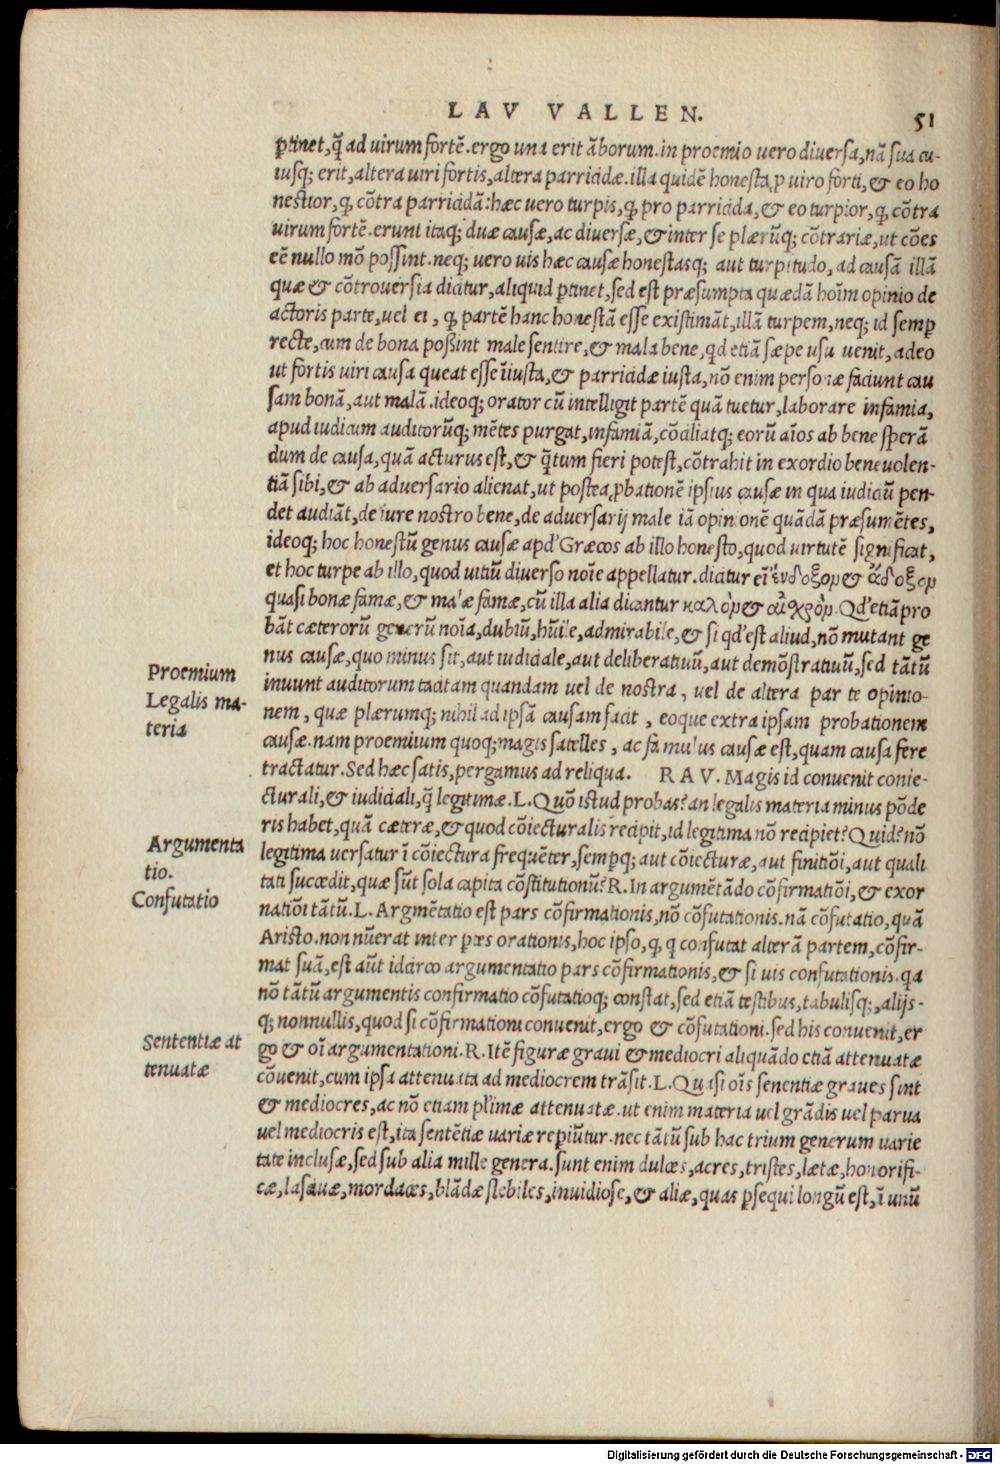 LAV VALLEN.
51
ptinet, q̃ ad uirum fortẽ. ergo una erit ãborum. in proemio uero diuersa, nã sua cu-
iusq; erit, altera uiri fortis, altera parricidæ. illa quidẽ honesta p uiro forti, & eo ho
nestior, q, cõtra parricidã: hæc uero turpis, q, pro parricida, & eo turpior, q, cõtra
uirum fortẽ. erunt itaq; duæ causæ, ac diuersæ, & inter se plærũq; cõtrariæ, ut cões
eẽ nullo mõ possint. neq; uero uis hæc causæ honestasq; aut turpitudo, ad causã illã
quæ & cõtrouersia dicitur, aliquid ptinet, sed est præsumpta quædã hoĩm opinio de
actoris parte, uel ei, q, partẽ hanc honestã esse existimãt, illã turpem, neq; id semp
recte, cum de bona poßint male sentire, & mala bene, qd etiã sæpe usu uenit, adeo
ut fortis uiri causa queat esse ĩiusta, & parricidæ iusta, nõ enim personæ faciunt cau
sam bonã, aut malã. ideoq; orator cũ intelligit partẽ quã tuetur, laborare infamia,
apud iudicum auditorũq; mẽtes purgat, infamiã, cõciliatq; eorũ aĩos ab bene sperã
dum de causa, quã acturus est, & q̃tum fieri potest, cõtrahit in exordio beneuolen-
tiã sibi, & ab aduersario alienat, ut postea pbationẽ ipsius causæ in qua iudiciũ pen-
det audiãt, de iure nostro bene, de aduersarij male iã opinionẽ quãdã præsumẽtes,
ideoq; hoc honestũ genus causæ apd' Græcos ab illo honesto, quod uirtutẽ significat,
et hoc turpe ab illo, quod uitiũ diuerso noĩe appellatur. dicitur eĩ ἔνδοξον & ἄδοξον
quasi bonæ famæ, & malæ famæ, cũ illa alia dicantur καλὸν & αἰσχρὸν. Qd' etiã pro
bãt cæterorũ generũ noĩa, dubiũ, hũile, admirabile, & si qd' est aliud, nõ mutant ge
nus causæ, quo minus sit, aut iudiciale, aut deliberatiuũ, aut demõstratiuũ, sed tãtũ
inuunt auditorum tacitam quandam uel de nostra, uel de altera par te opinio-
nem, quæ plærumq; nihil ad ipsã causam facit, eoque extra ipsam probationem
causæ. nam proemium quoq; magis satelles, ac famulus causæ est, quam causa fere
tractatur. Sed hæc satis, pergamus ad reliqua. RAV. Magis id conuenit conie-
cturali, & iudiciali, q̃ legitimæ. L. Quõ istud probas? an legalis materia minus põde
ris habet, quã cæteræ, & quod cõiecturalis recipit, id legitima nõ recipiet? Quid? nõ
legitima uersatur ĩ cõiectura frequẽter, sempq; aut cõiecturæ, aut finitiõi, aut quali
tati succedit, quæ sũt sola capita cõstitutionũ? R. In argumẽtãdo cõfirmatiõi, & exor
natiõi tãtũ. L. Argmẽtatio est pars cõfirmationis, nõ cõfutationis. nã cõfutatio, quã
Aristo. non nũerat inter ptes orationis, hoc ipso, q, q confutat alterã partem, cõfir-
mat suã, est aũt idcirco argumentatio pars cõfirmationis, & si uis confutationis. qa
nõ tãtũ argumentis confirmatio cõfutatioq; constat, sed etiã testibus, tabulisq;, alijs-
q; nonnullis, quod si cõfirmationi conuenit, ergo & cõfutationi. sed his conuenit, er
go & oĩ argumentationi. R. Itẽ figuræ graui & mediocri aliquãdo etiã attenuatæ
cõuenit, cum ipsa attenuata ad mediocrem trãsit. L. Quasi oĩs senentiæ graues sint
& mediocres, ac nõ etiam pl'imæ attenuatæ. ut enim materia uel grãdis uel parua
uel mediocris est, ita sentẽtiæ uariæ repiũtur. nec tãtũ sub hac trium generum uarie
tate inclusæ, sed sub alia mille genera. sunt enim dulces, acres, tristes, lætæ, honorifi-
cæ, lasciuæ, mordaces, blãdæ flebiles, inuidiose, & aliæ, quas psequi longũ est, ĩ unũ
Proemium
Legalis ma-
teria
Argumenta
tio.
Confutatio
Sententiæ at
tenuatæ
Digitalisierung gefördert durch die Deutsche Forschungsgemeinschaft - DFG